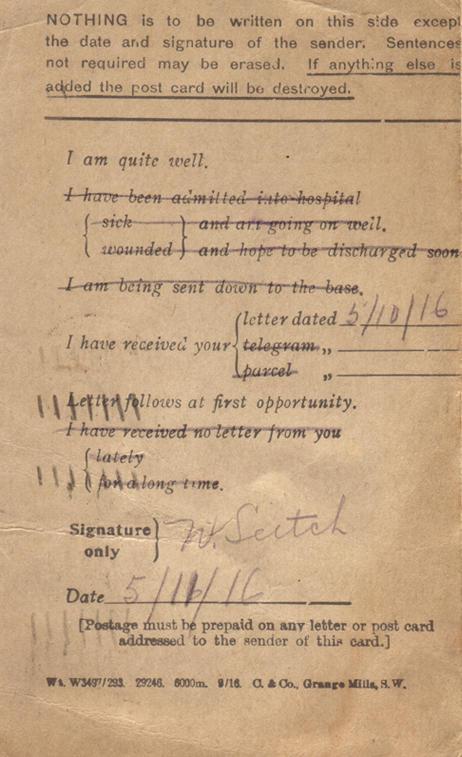 NOTHING is to be written on this side excep
the date and signature of the sender. Sentences
not required may be erased. If anything else is
added the post card will be destroyed.
I am quite well.
I have been admitted into hospital
{ sick } and are going on well.
{ wounded } and hope to be discharged soon
I am being sent down to the base.
I have received your { letter dated 5/10/16
telegram „
parcel „
Letter follows at first opportunity.
I have received no letter from you
{ lately
{ for a long time.
Signature only } W. Seitch
Date 5/11/16
[Postage must be prepaid on any letter or post card
addressed to the sender of this card.]
Wt. W3497/293. 29246. 6000m. 9/16. C. & Co., Grange Mills, S.W.